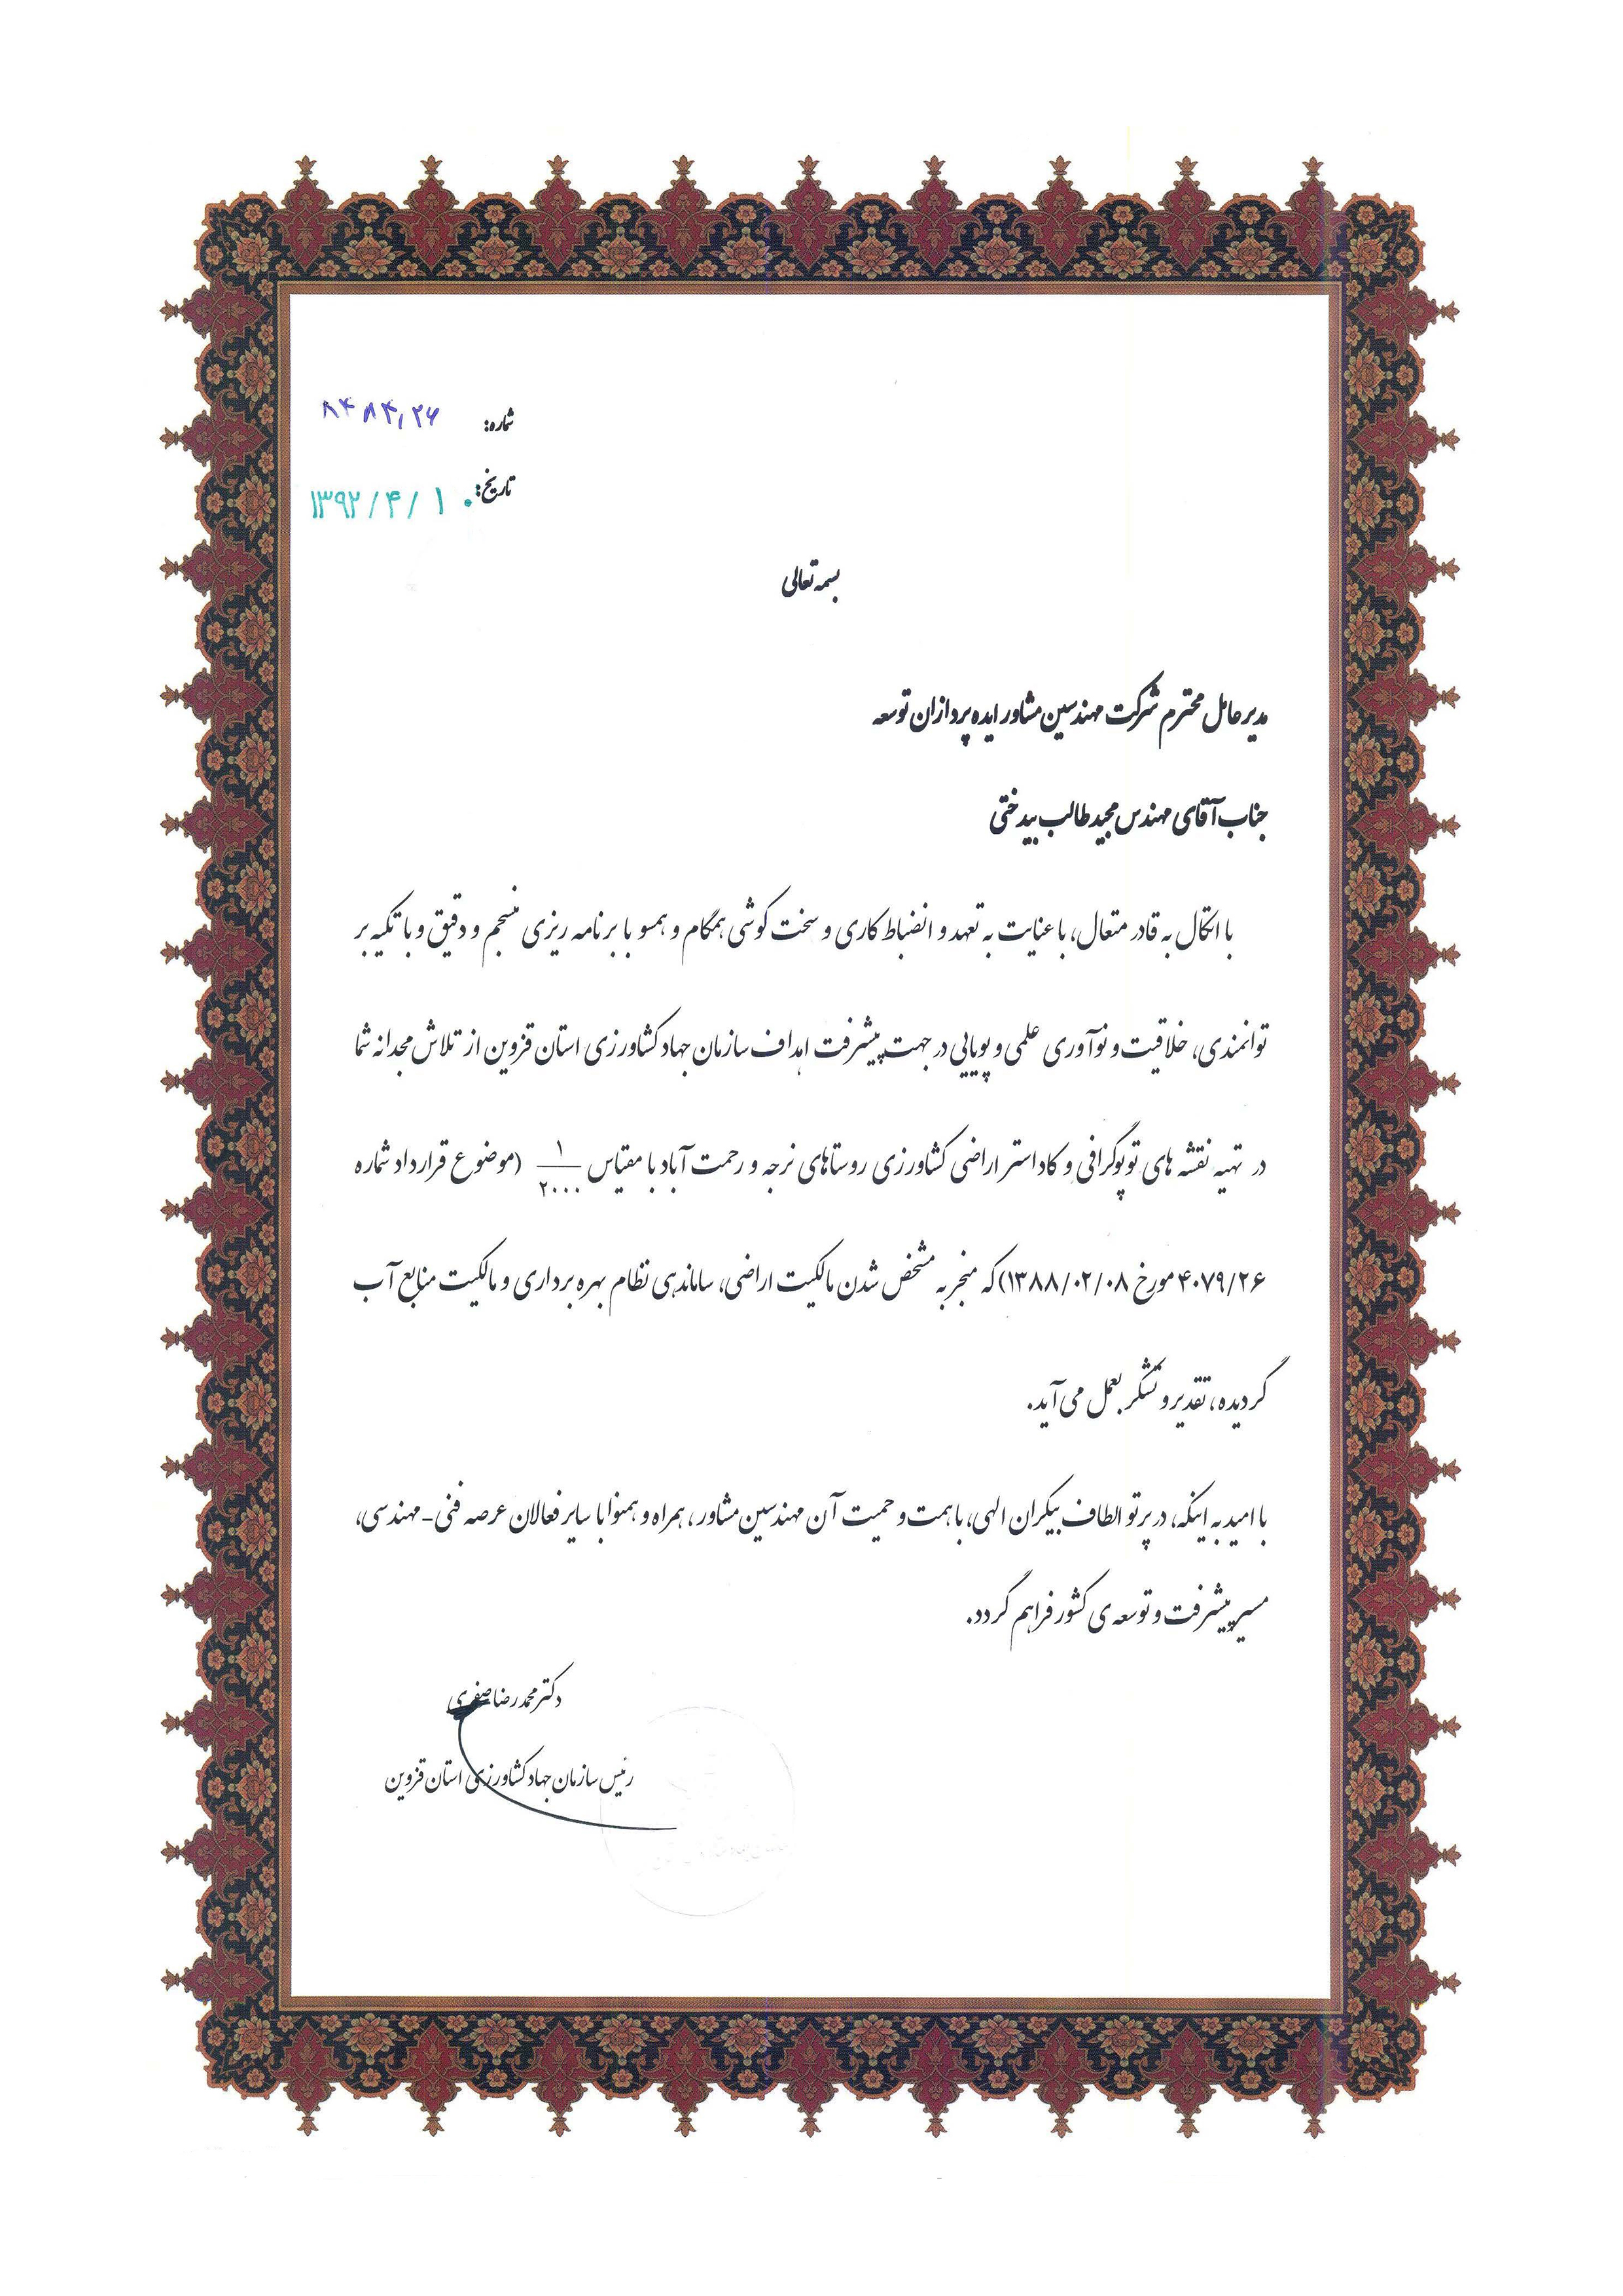 شماره: ۸۴۸۴/۲۶
تاریخ: ۱۳۹۲/۴/۱۰
بسمه تعالی
مدیر عامل محترم شرکت مهندسین مشاور ایده پردازان توسعه
جناب آقای مهندس مجید طالب بیدختی
با اتکال به قادر متعال، با عنایت به تعهد و انضباط کاری و سخت کوشی همگام و همسو با برنامه ریزی منسجم و دقیق و با تکیه بر
توانمندی، خلاقیت و نوآوری علمی و پویایی در جهت پیشرفت اهداف سازمان جهاد کشاورزی استان قزوین از تلاش مجدانه شما
در تهیه نقشه های توپوگرافی و کاداستر اراضی کشاورزی روستاهای نرجه و رحمت آباد با مقیاس ۱/۲۰۰۰ (موضوع قرارداد شماره
۴۰۷۹/۲۶ مورخ ۱۳۸۸/۰۲/۰۸) که منجر به مشخص شدن مالکیت اراضی، ساماندهی نظام بهره برداری و مالکیت منابع آب
گردیده، تقدیر و تشکر بعمل می آید.
با امید به اینکه، در پرتو الطاف بیکران الهی، با همت و حمیت آن مهندسین مشاور، همراه و همنوا با سایر فعالان عرصه فنی-مهندسی،
مسیر پیشرفت و توسعه ی کشور فراهم گردد.
دکتر محمد رضا صفری
رئیس سازمان جهاد کشاورزی استان قزوین